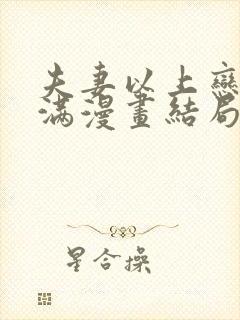 夫妻以上戀
满漫畫結局
星合操